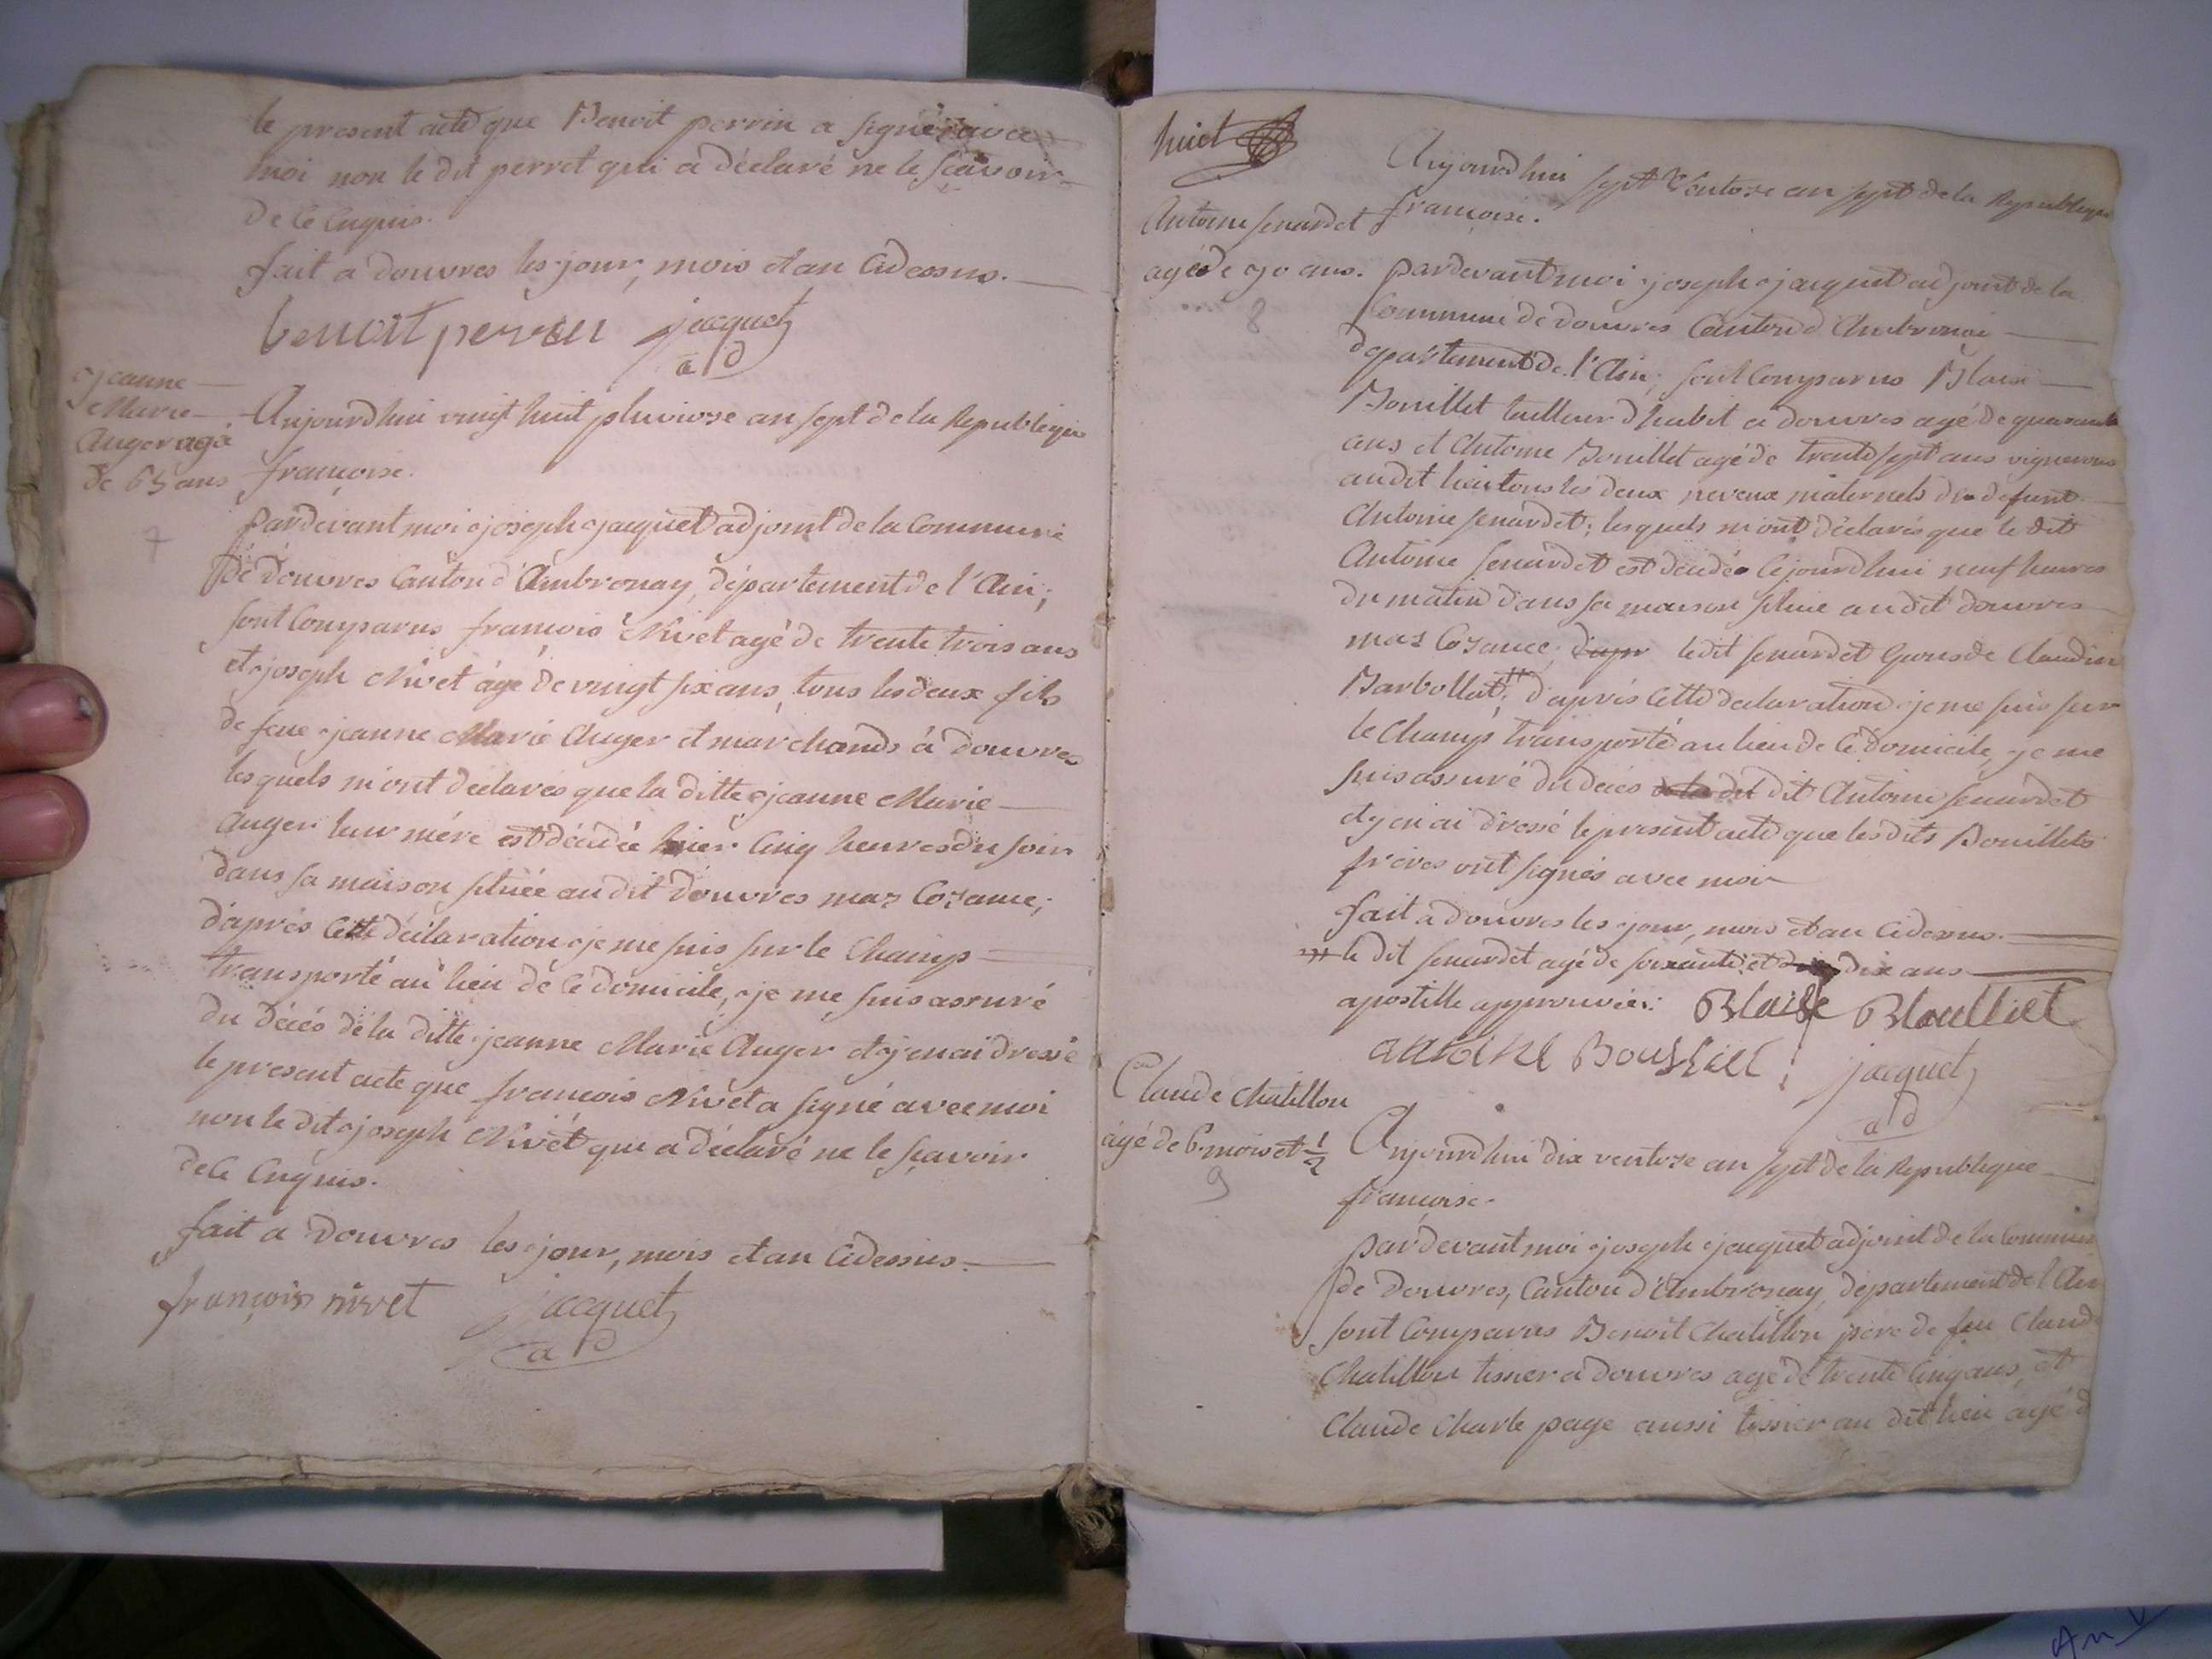 le present acte que Benoit perrin a signé avec
moi non le dit perret qui a déclaré ne le sçavoir
de ce enquis.
fait a douvres les jour, mois et an cidessus.
benoit perrin jacquet
ad
jeanne
Marie
Auger agé
de 65 ans
7
Aujourdhui vingt huit pluviose an sept de la Republique
françoise.
pardevant moi joseph jacquet adjoint de la Commune
de Douvres Canton d'Ambronay, département de l'Ain;
sont Comparus françois Nivet agé de trente trois ans
et joseph Nivet agé de vingt six ans, tous les deux fils
de feue jeanne Marie Auger et marchands à Douvres
lesquels m'ont déclarés que la ditte jeanne Marie
Auger leur mére est décédée hier Cinq heures du soir
dans sa maison situèe au dit Douvres mas Cozance;
d'aprés Cette déclaration je me suis sur le Champs
transporté au lieu de ce domicile, je me suis assuré
du décés de la ditte jeanne Marie Auger et j'en ai dressé
le present acte que francois Nivet a signé avec moi
non le dit joseph Nivet que a déclaré ne le sçavoir
de ce Enquis.
fait a Douvres les jour, mois et an Cidessus.
françois nivet jacquet
ad
huit
Antoine senardet
agé de 70 ans.
8
Aujourdhui sept Ventose an sept de la Republique
françoise.
pardevant moi joseph jacquet adjoint de la
Commune de Douvres Canton d'Ambronai
département de l'Ain; sont Comparus Blaise
Bouillet tailleur d'habit a douvres agé de quarante
ans et Antoine Bouillet agé de trente sept ans vigneron
audit lieu tous les deux neveux maternels du defunt
Antoine senardet; lesquels m'ont déclarés que le dit
Antoine senardet est décédé cejourdhui neuf heures
du matin dans sa maison situé au dit douvres
mas Cozance; d'apr le dit senardet Epous de Claudine
Barbollat; d'aprés Cette declaration je me suis sur
le Champs transporté au lieu de ce domicile, je me
suis assuré du décés dit Antoine senardet
et j'en ai dressé le present acte que les dits Bouillets
frères ont signés avec moi
fait a Douvres les jour, mois et an Cidessus.
le dit senardet agé de soixante et dix ans
apostille approuvée: Blaise Bloulliet
antoine Boulliet jacquet
ad
Claude Chatillon
agé de 6 mois et 1/2
9
Aujourdhui dix ventose an sept de la Republique
françoise.
pardevant moi joseph jacquet adjoint de la Commune
de Douvres, Canton d'Ambronay, département de l'Ain
sont Comparus Benoit Chatillon pere de feu Claude
Chatillon tissier a Douvres agé de trente Cinq ans, et
Claude Charle page aussi tissier au dit lieu agé d